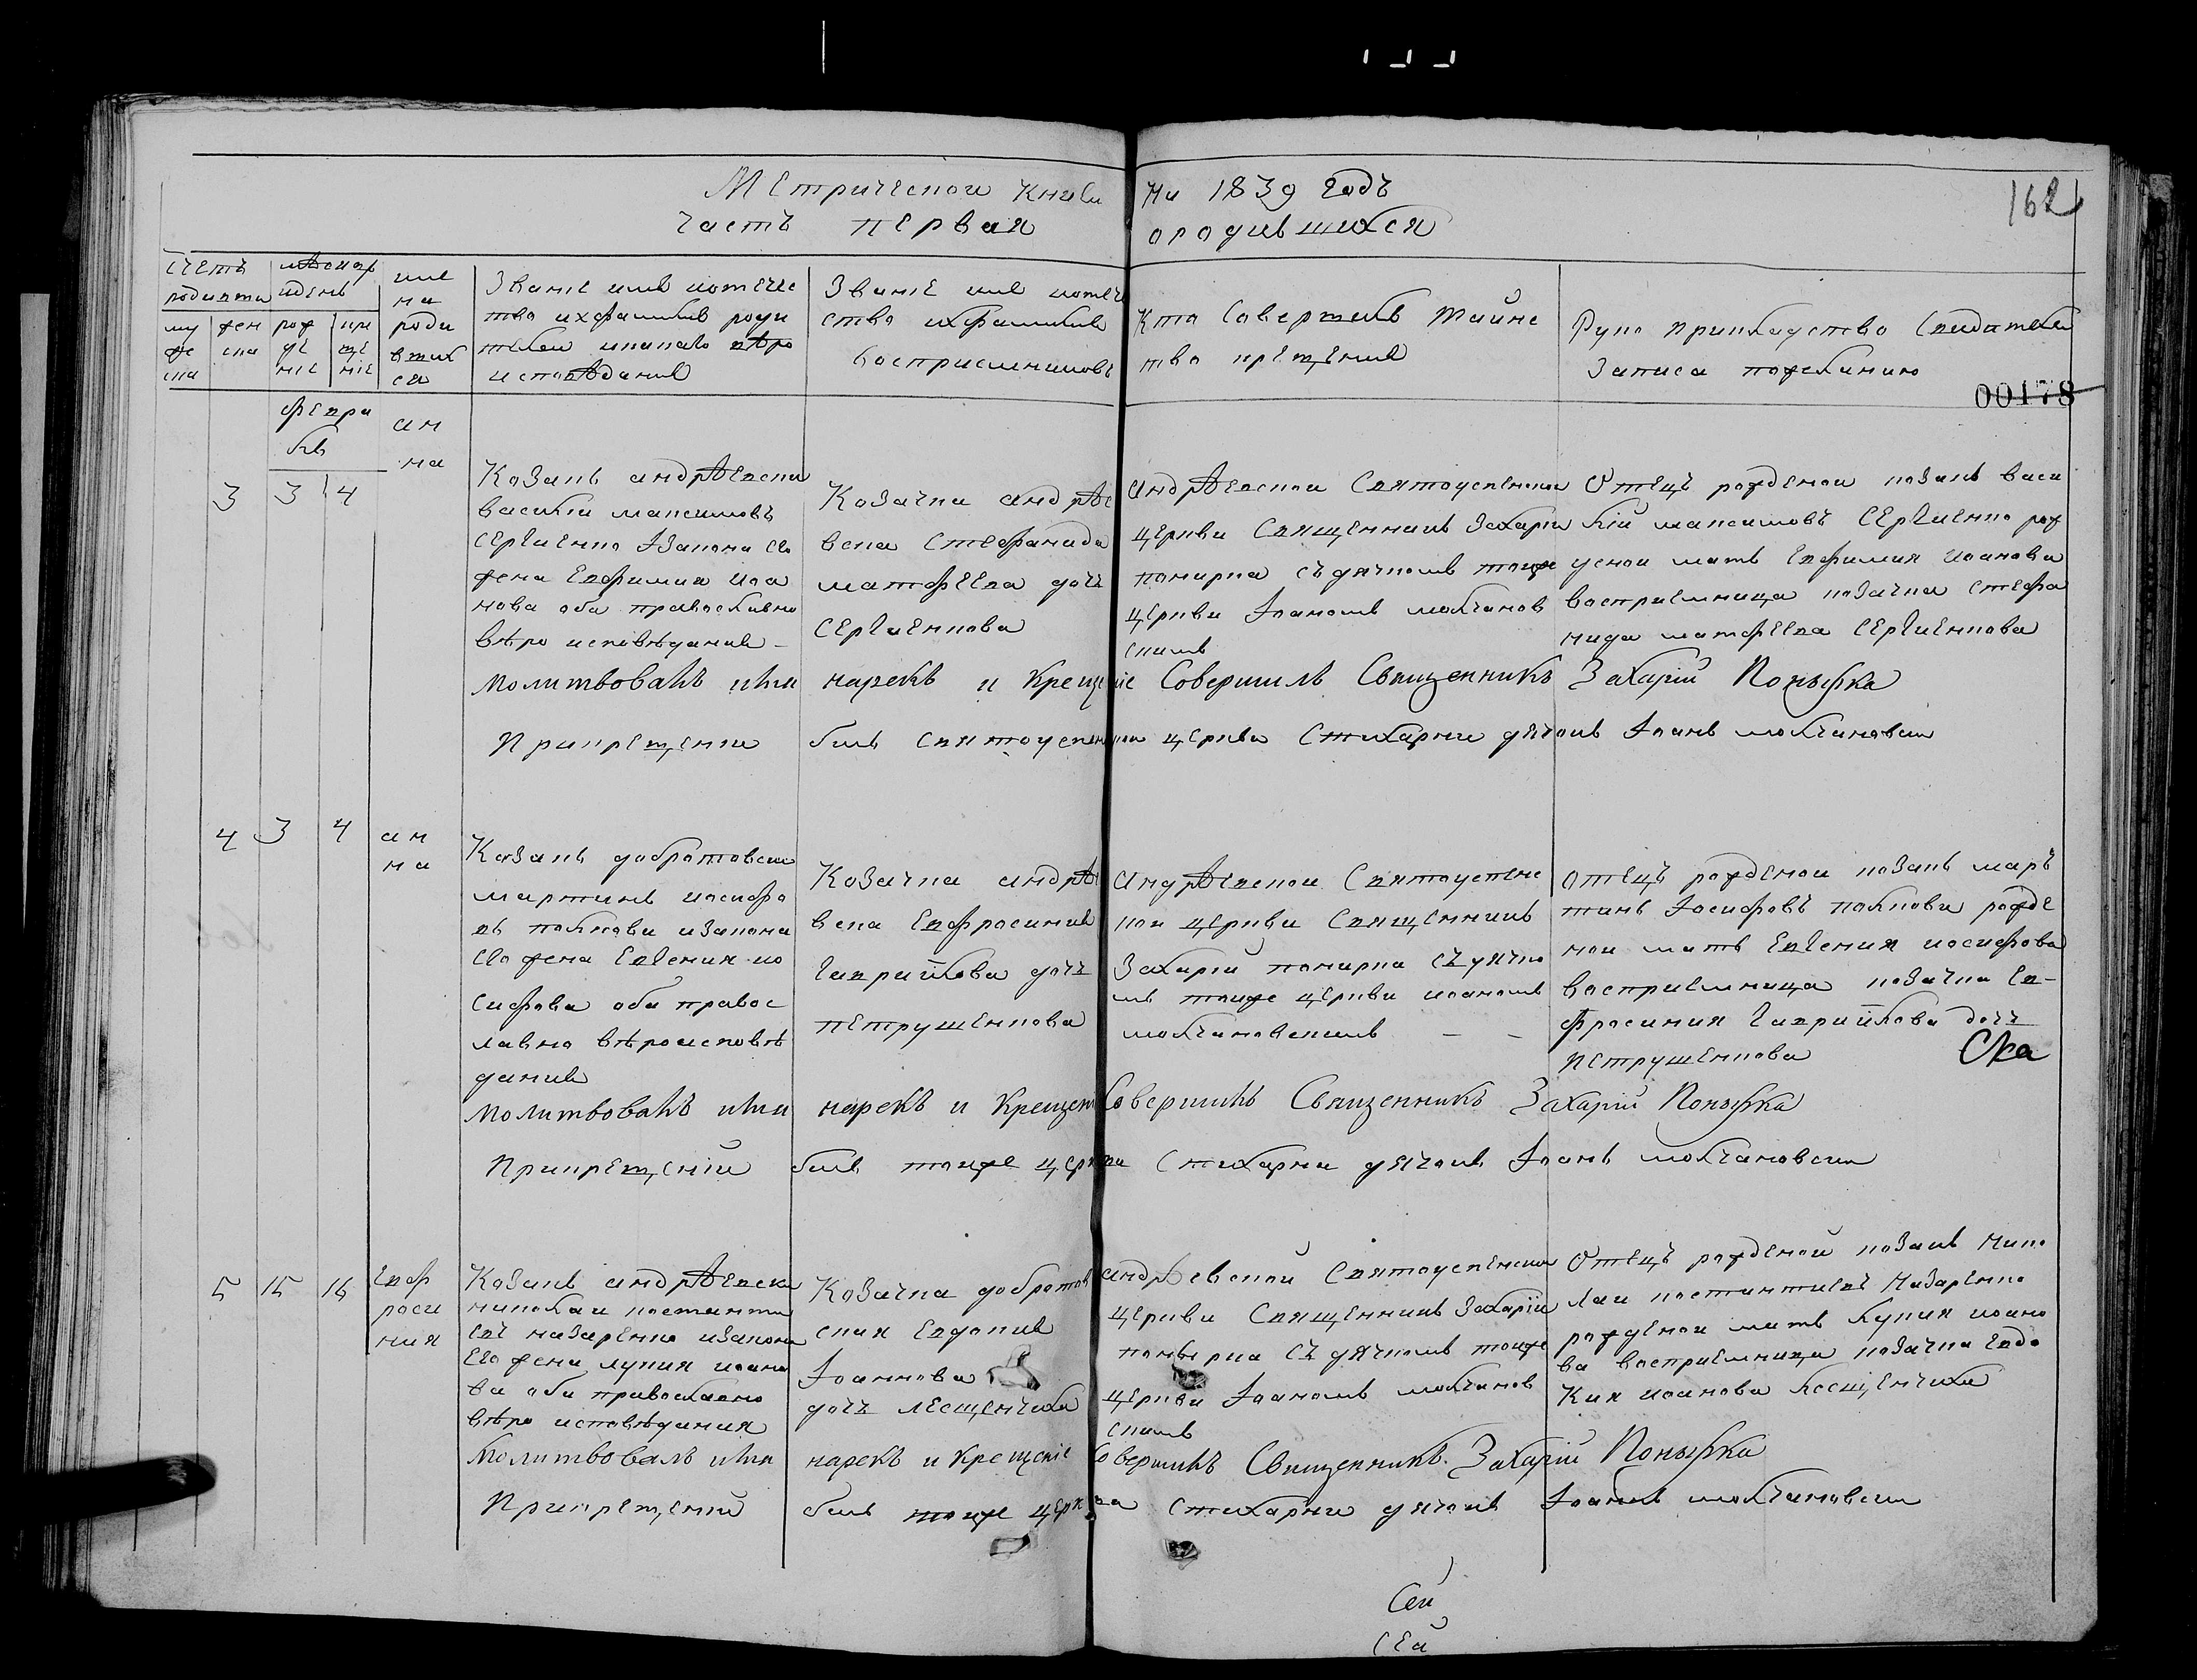 Метрической книги на 1839 годъ
162
часть первая ородившихся
счетъ
родивти
му
же
ска
жен
ска
мѣсяцъ
идень
рож
де
ніе
кре
ще
ніе
име
на
роди
вших
ся
Званіе имя иотече
тво ихфамилія роди
телей икакаго вѣро
исповѣданія
Званіе имя иотеч
ство ихфамилія
восприемниковъ
Кто совершилъ таинс
тво крещенія
Руко прикладство свидѣтелей
записа пожеланию
00178
февра
ля
3 3 4
ан
на
Казакъ андрѣевски
василий максимовъ
Сергиенко Iзаконна его
жена Евфимия Иоа
нова оба православна
вѣро исповѣдания –
Козачка андрѣе
вска Стефанида
матфеева дочь
Сергиенкова
андрѣевской Святоуспенской
церкви Священникъ Захарій
понирка съ дячкомъ тоиже
церкви Iоаномъ молчанов
скимъ
Отецъ рожденой козакъ васи
лій максимовъ Сергиенко рож
деной мать Евфимия Иоанова
восприемница козачка стефа
нида матфеева Сергиенкова
Молитвовалъ имя нарекъ и крещеніе Совершилъ Священникъ Захарій Понырка
Прикрещении былъ святоуспенской церкви Стихарни дячокъ Iоанъ молчановски
4 3 4
ан
на
Казакъ добротовски
мартинъ иосифо
въ полкова изакона
его жена Евгения ио
сифова оба правос
лавна вѣроисповѣ
дания
Козачка андрѣе
вска Евфросиния
гаврийлова дочь
петрушенкова
Андрѣевской Святоуспенс
кой церкви Священникъ
Захарій понирка съ дячко
мъ тоиже церкви иоаномъ
молчановскимъ – –
отецъ рожденой козакъ март
тинъ Iосифовъ полкова рожде
ной мать Евгения иосифова
восприемница козачка Ев-
фросиния гаврийлова дочь
петрушенкова
Ска
Молитвовалъ имя нарекъ и Крещеніе Совершилъ Священникъ Захарій Понырка
Прикрещеніи былъ тоиже церкви Стихарни дячокъ Iоанъ молчановски
5 15 16
Евф
роси
ния
Казакъ андрѣевски
николаи константи
евъ назаренко изакона
его жена лукия иоано
ва оба православно
вѣро исповѣдания
Козачка добротов
ская Евдокия
Iоаннова
дочь лесщенчиха
андрѣевской Святоуспенской
церкви Священникъ Захарій
понырка съ дячкомъ тоиже
церкви Iоаномъ молчанов
скимъ
Отецъ рожденой козакъ нико
лаи костантиевъ Назаренко
рожденои мать лукия иоано
ва восприемница козачка Евдо
кия иоанова лесщенчиха
Молитвовалъ имя нарекъ и крещеніе Совершилъ Священникъ Захарій Понырка
Прикрещеній былъ тоиже церква Стихарни дячокъ Iоанъ молчановски
Сей
Сей